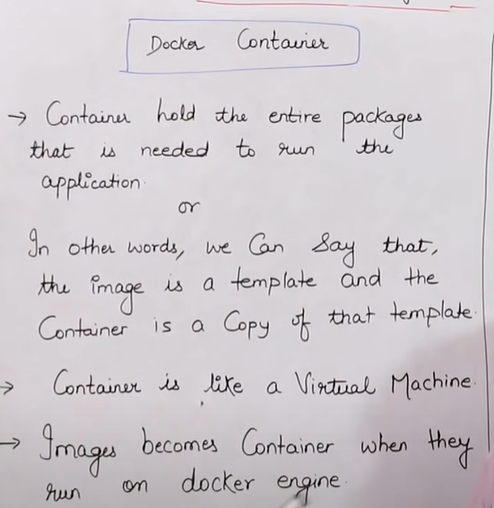 Docker Container
→ Container hold the entire packages
that is needed to run the
application.
or
In other words, we Can Say that,
the image is a template and the
Container is a Copy of that template.
→ Container is like a Virtual Machine.
→ Images becomes Container when they
run on docker engine.